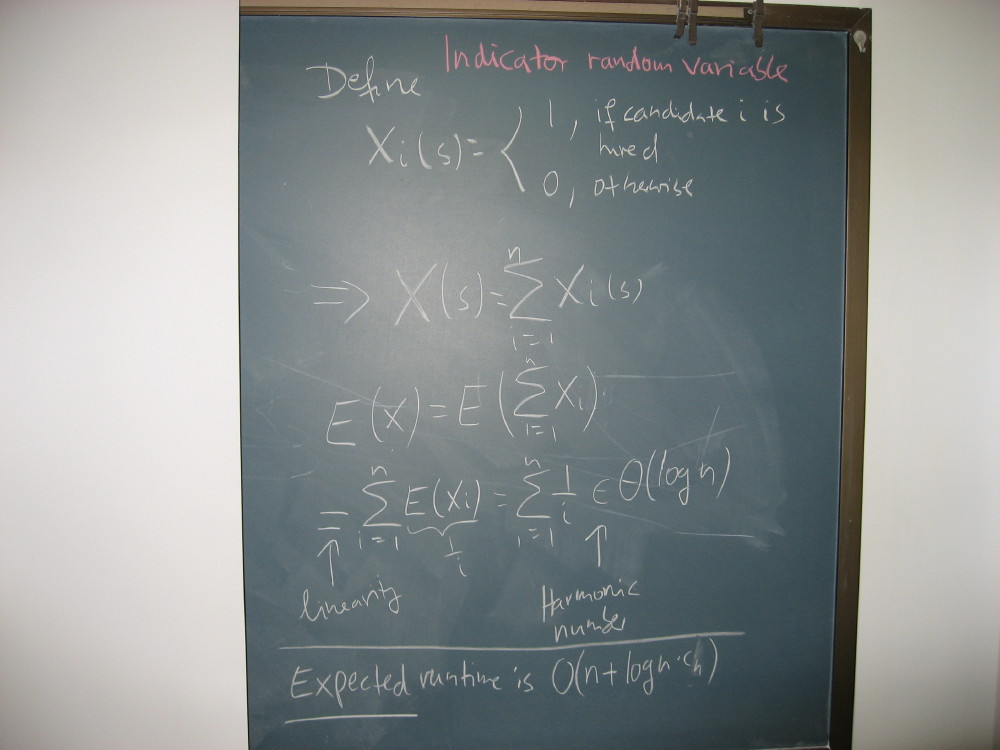 Indicator random variable
Define
Xi(s)= { 1, if candidate i is
hired
0, otherwise
=> X(s)= n∑i=1 Xi(s)
E(X) = E( n∑i=1 Xi)
= n∑i=1 E(Xi) = n∑i=1 1/i ∈ Θ(log n)
↑ 1/i ↑
linearity Harmonic
number
Expected runtime is O(n+logn·ch)